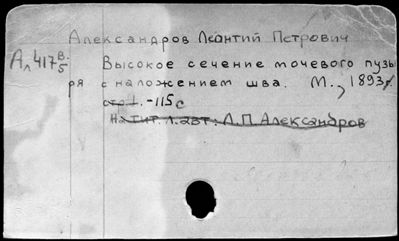 Александров Леонтий Петрович
Ал 417 в. 5 Высокое сечение мочевого пузы
ря с наложением шва. М., 1893г.
-115с
На тит. л. авт: Л.П. Александров